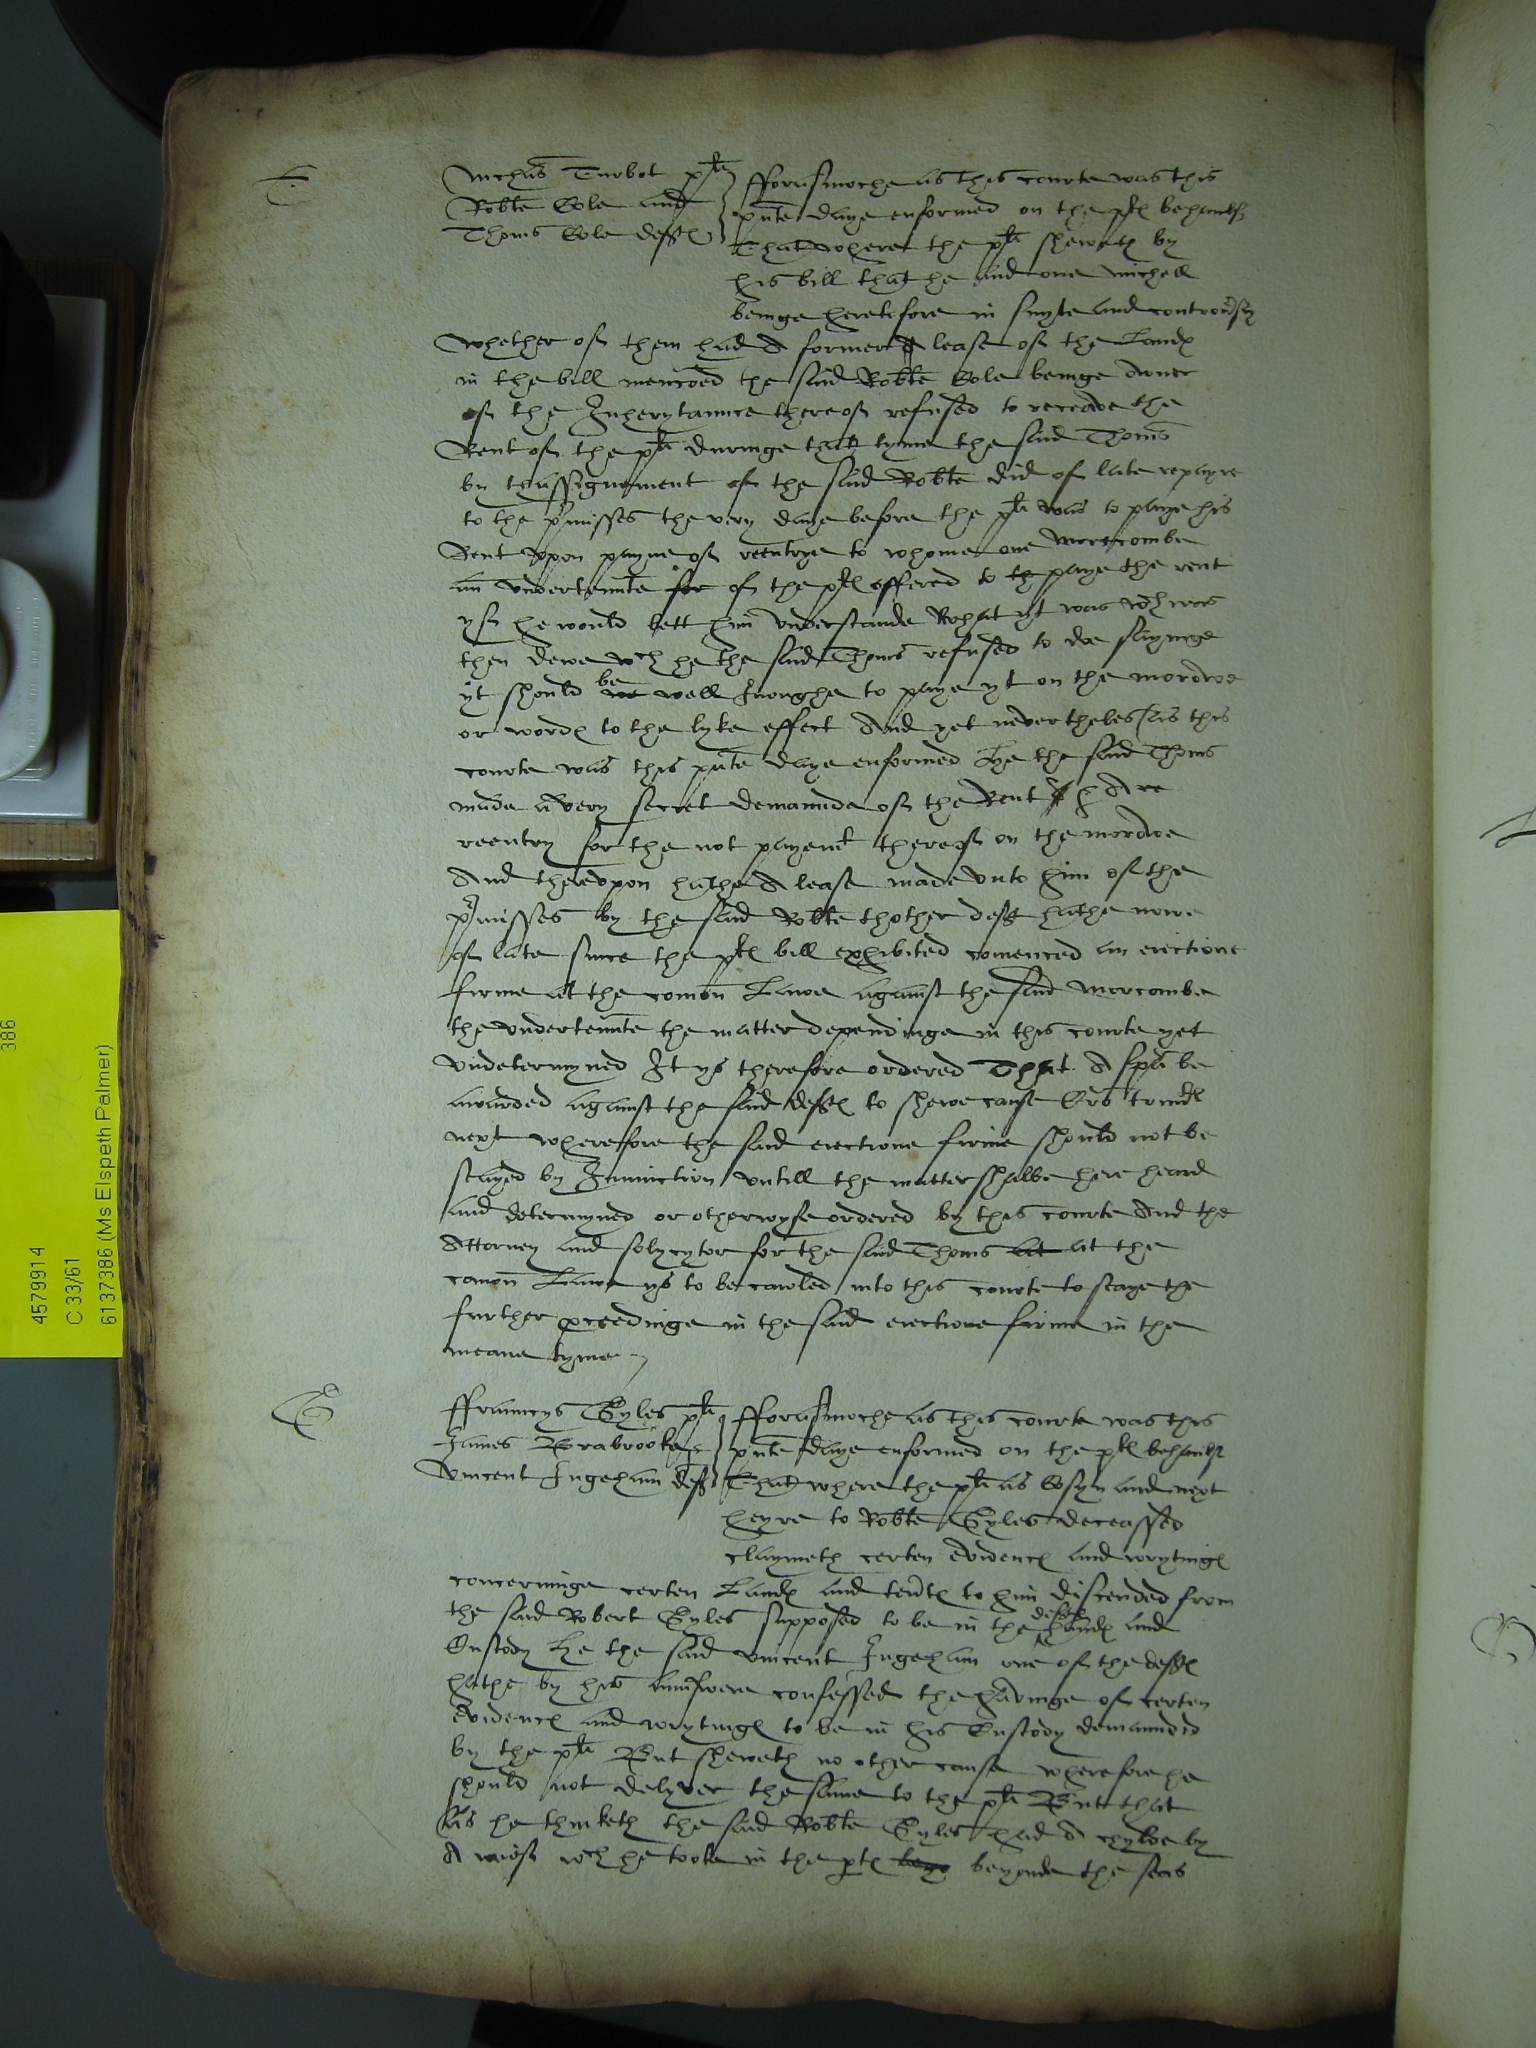 Nichas Turbot plt
Robte Cole and
Thoms Cole defts
fforasmoche as this courte was this
pnte daye enformed on the pltes behawlf
That where the plt sheweth by
his bill that he and one Michell
beinge heretofore in suyte and controu'sy
whether of them had A former lease of the Landes
in the bill mencoed the said Robte Cole beinge Awner
of the Inherytaunce thereof refused to receave the
Rent of the plt duringe that tyme the said Thoms
by thassignement of the said Robte did of late repayre
to the p'misses the very daye before the plt was to paye his
Rent vpon payne of reentrye to whome one Morecombe
an vndertennte for of the pltes offered to paye the rent
yf he would lett him vnderstande What yt was wch was
then dewe wch he the said Thoms refused to doe sayinge
yt should be well Inoughe to paye yt on the mordwe
or wordes to the lyke effect And yet nevertheles (as this
courte was this pnte daye enformed he the said Thoms
made a very secret demaunde of the Rent & A re
reentry for the not payent thereof on the mordwe
And therevpon hathe A lease made vnto him of the
p'misses by the said Robte thother deft hathe nowe
of late since the pltes bill exhibited comenced an eiectione
firme at the comon Lawe against the said Morcombe
the vndertennte the matter dependinge in this courte yet
vndetermyned It ys therefore ordered That A spa be
awarded against the said deftes to shewe cause Cro trindt
next wherefore the said eiectione firme should not be
stayed by Iniunction vntill the matter shalbe here heard
and determyned or otherwyse ordered by this courte And the
Attorney and solycytor for the said Thoms at at the
comon Lawe ys to be cawled into this courte to staye the
further proceedinge in the said eiectione firme in the
meane tyme
ffrauncys Gyles plt
James Brabrooke
Vincent Ingeham deft
fforasmoche as this courte was this
pnte daye enformed on the pltes behawlf
That where the plt as Cosyn and next
heyre to Robte Gyles deceassed
claymeth certen evidences and wrytinges
concerninge certen Landes and tentes to him discended from
the said Robert Gyles supposed to be in the deftes handes and
Custody he the said Vincent Ingeham one of the deftes
hathe by his aunswere confessed the havinge of certen
evidences and wrytinges to be in his Custody demaunded
by the plt But sheweth no other cause wherefore he
should not delyver the same to the plt But that
(as he thinketh the said Robte Gyles had A chylde by
A wief wch he tooke in the ptes beyonde the seas
4579914
386
C 33/61
6137386 (Ms Elspeth Palmer)